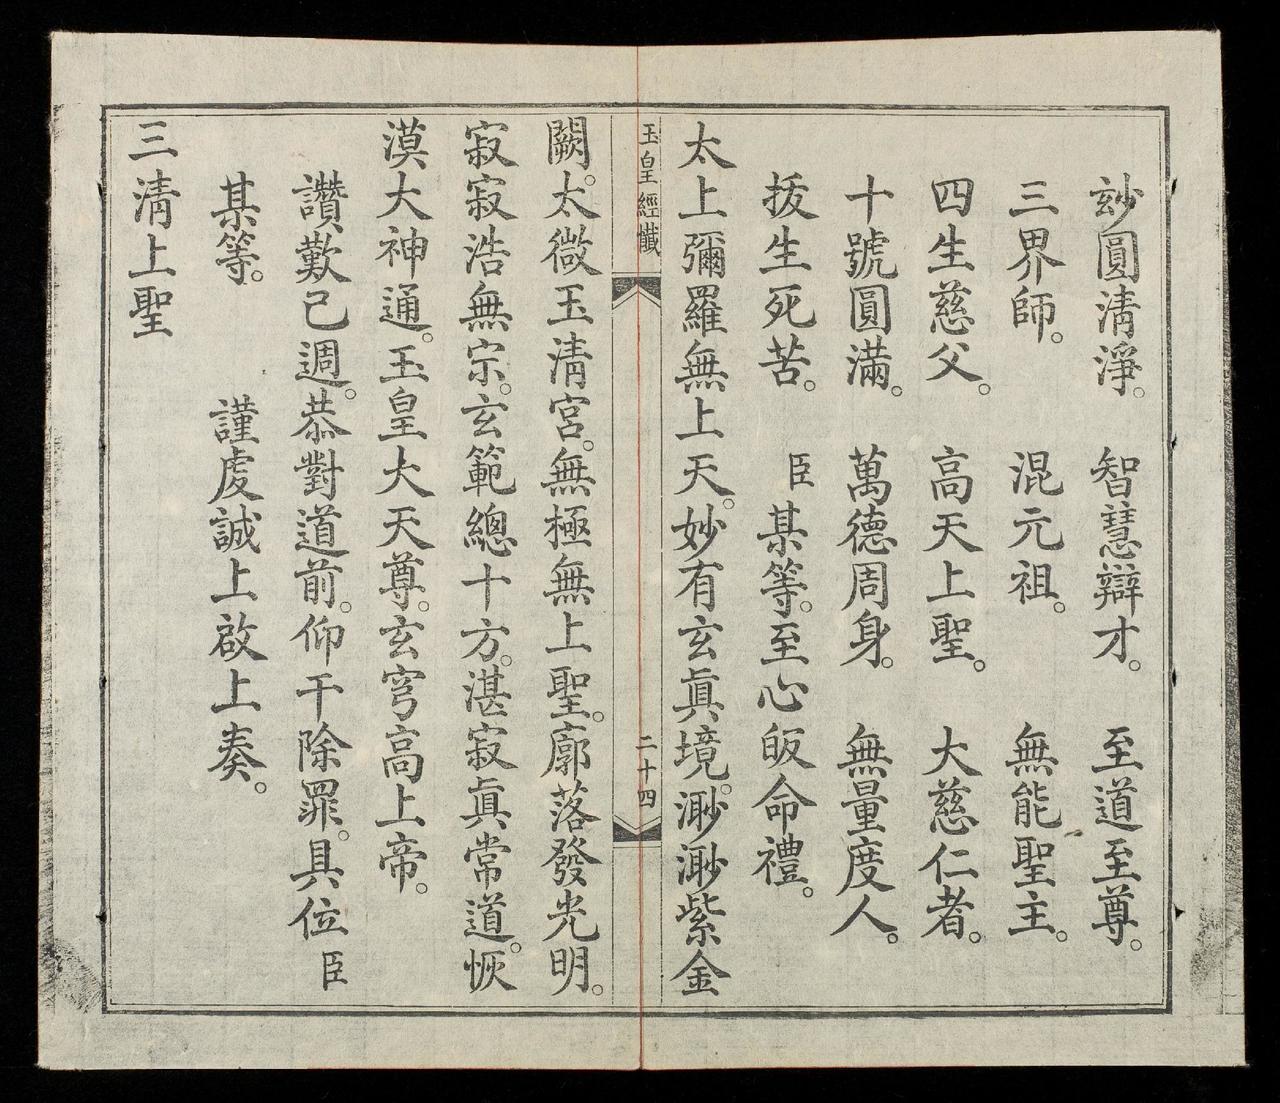 玅圓清淨。　智慧辯才。　至道至尊。
三界師。　混元祖。　無能聖主。
四生慈父。　高天上聖。　大慈仁者。
十號圓滿。　萬德周身。　無量度人。
拔生死苦。　臣某等。至心皈命禮。
太上彌羅無上天。妙有玄眞境。渺渺紫金
玉皇經懺
二十四
闕。太微玉清宮。無極無上聖。廓落發光明。
寂寂浩無宗。玄範總十方。湛寂眞常道。恢
漠大神通。玉皇大天尊。玄穹高上帝。
讚歎已週。恭對道前。仰干除罪。具位臣
某等。　謹虔誠上啟上奏。
三清上聖